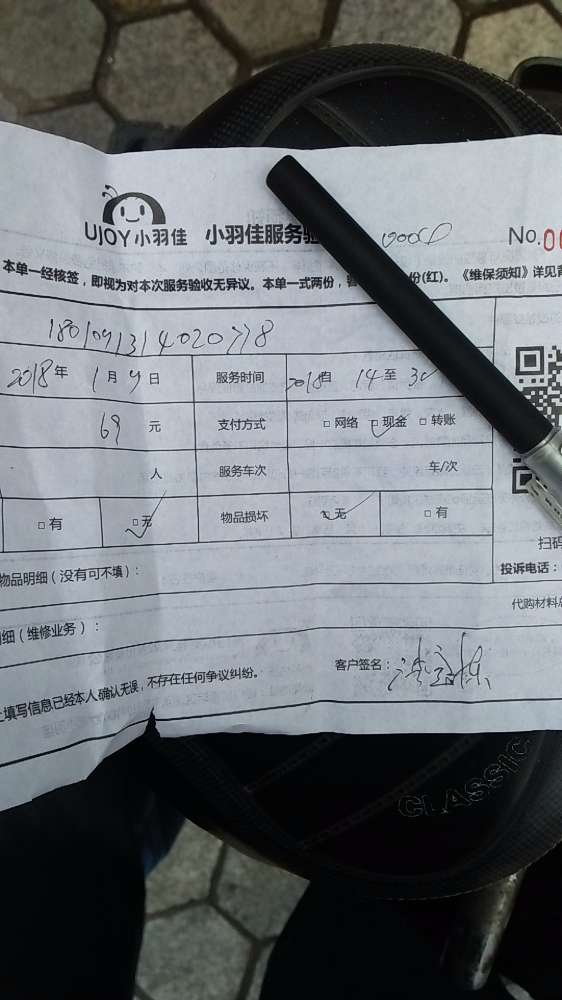 UJOY小羽佳 小羽佳服务验 No.0
本单一经核签，即视为对本次服务验收无异议。本单一式两份， 份(红)。《维保须知》详见背
2018年 1月9日 服务时间 14至
69元 支付方式 □网络 □现金 □转账
人 服务车次 车/次
□有 □无 物品损坏 □无 □有
扫码
物品明细（没有可不填）： 投诉电话：
代购材料总
细（维修业务）：
客户签名：
上填写信息已经本人确认无误，不存在任何争议纠纷。
CLASSIC